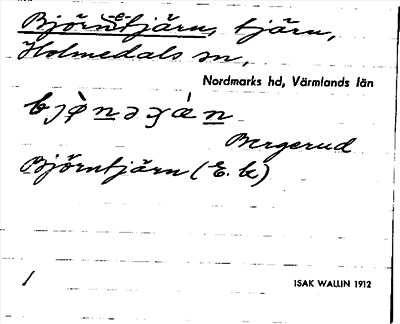 Björnetjärn, tjärn,
Holmedals sn,
Nordmarks hd, Värmlands län
Bergerud
Björntjärn (E. k)
1
ISAK WALLIN 1912